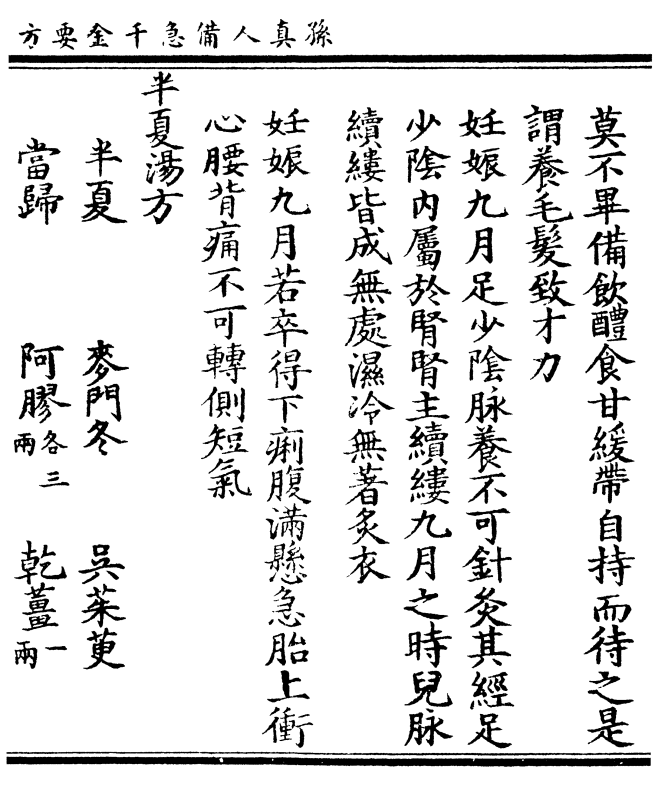 孫真人備急千金要方
莫不畢備飲醴食甘緩帶自持而待之是
謂養毛髮致才力
妊娠九月足少陰脉養不可針灸其經足
少陰内屬於腎腎主續縷九月之時兒脉
續縷皆成無處濕冷無著炙衣
妊娠九月若卒得下痢腹滿懸急胎上衝
心腰背痛不可轉側短氣
半夏湯方
半夏 麥門冬 吳茱萸
當歸 阿膠各三兩 乾薑一兩